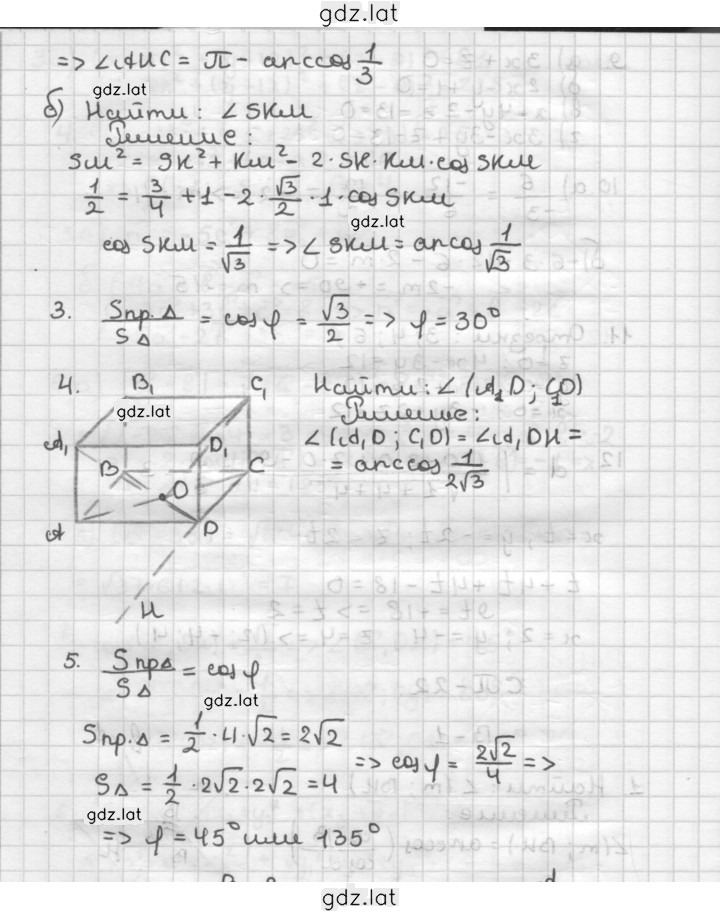 gdz.lat
=> ∠AMC = π - arccos 1/3
gdz.lat
б) Найти: ∠SKM
Решение:
SM² = SK² + KM² - 2·SK·KM·cos SKM
1/2 = 3/4 + 1 - 2·√3/2·1·cos SKM
gdz.lat
cos SKM = 1/√3 => ∠SKM = arccos 1/√3
3. Sпр.Δ/SΔ = cos φ = √3/2 => φ = 30°
4. Найти: ∠(A₁D; C₁O)
Решение:
∠(A₁D; C₁D) = ∠A₁DH =
= arccos 1/2√3
B₁ C₁
gdz.lat
A₁ D₁
B C
O
A D
H
5. SпрΔ/SΔ = cos φ
gdz.lat
Sпр.Δ = 1/2·4·√2 = 2√2
SΔ = 1/2·2√2·2√2 = 4
=> cos φ = 2√2/4 =>
gdz.lat
=> φ = 45° или 135°
gdz.lat